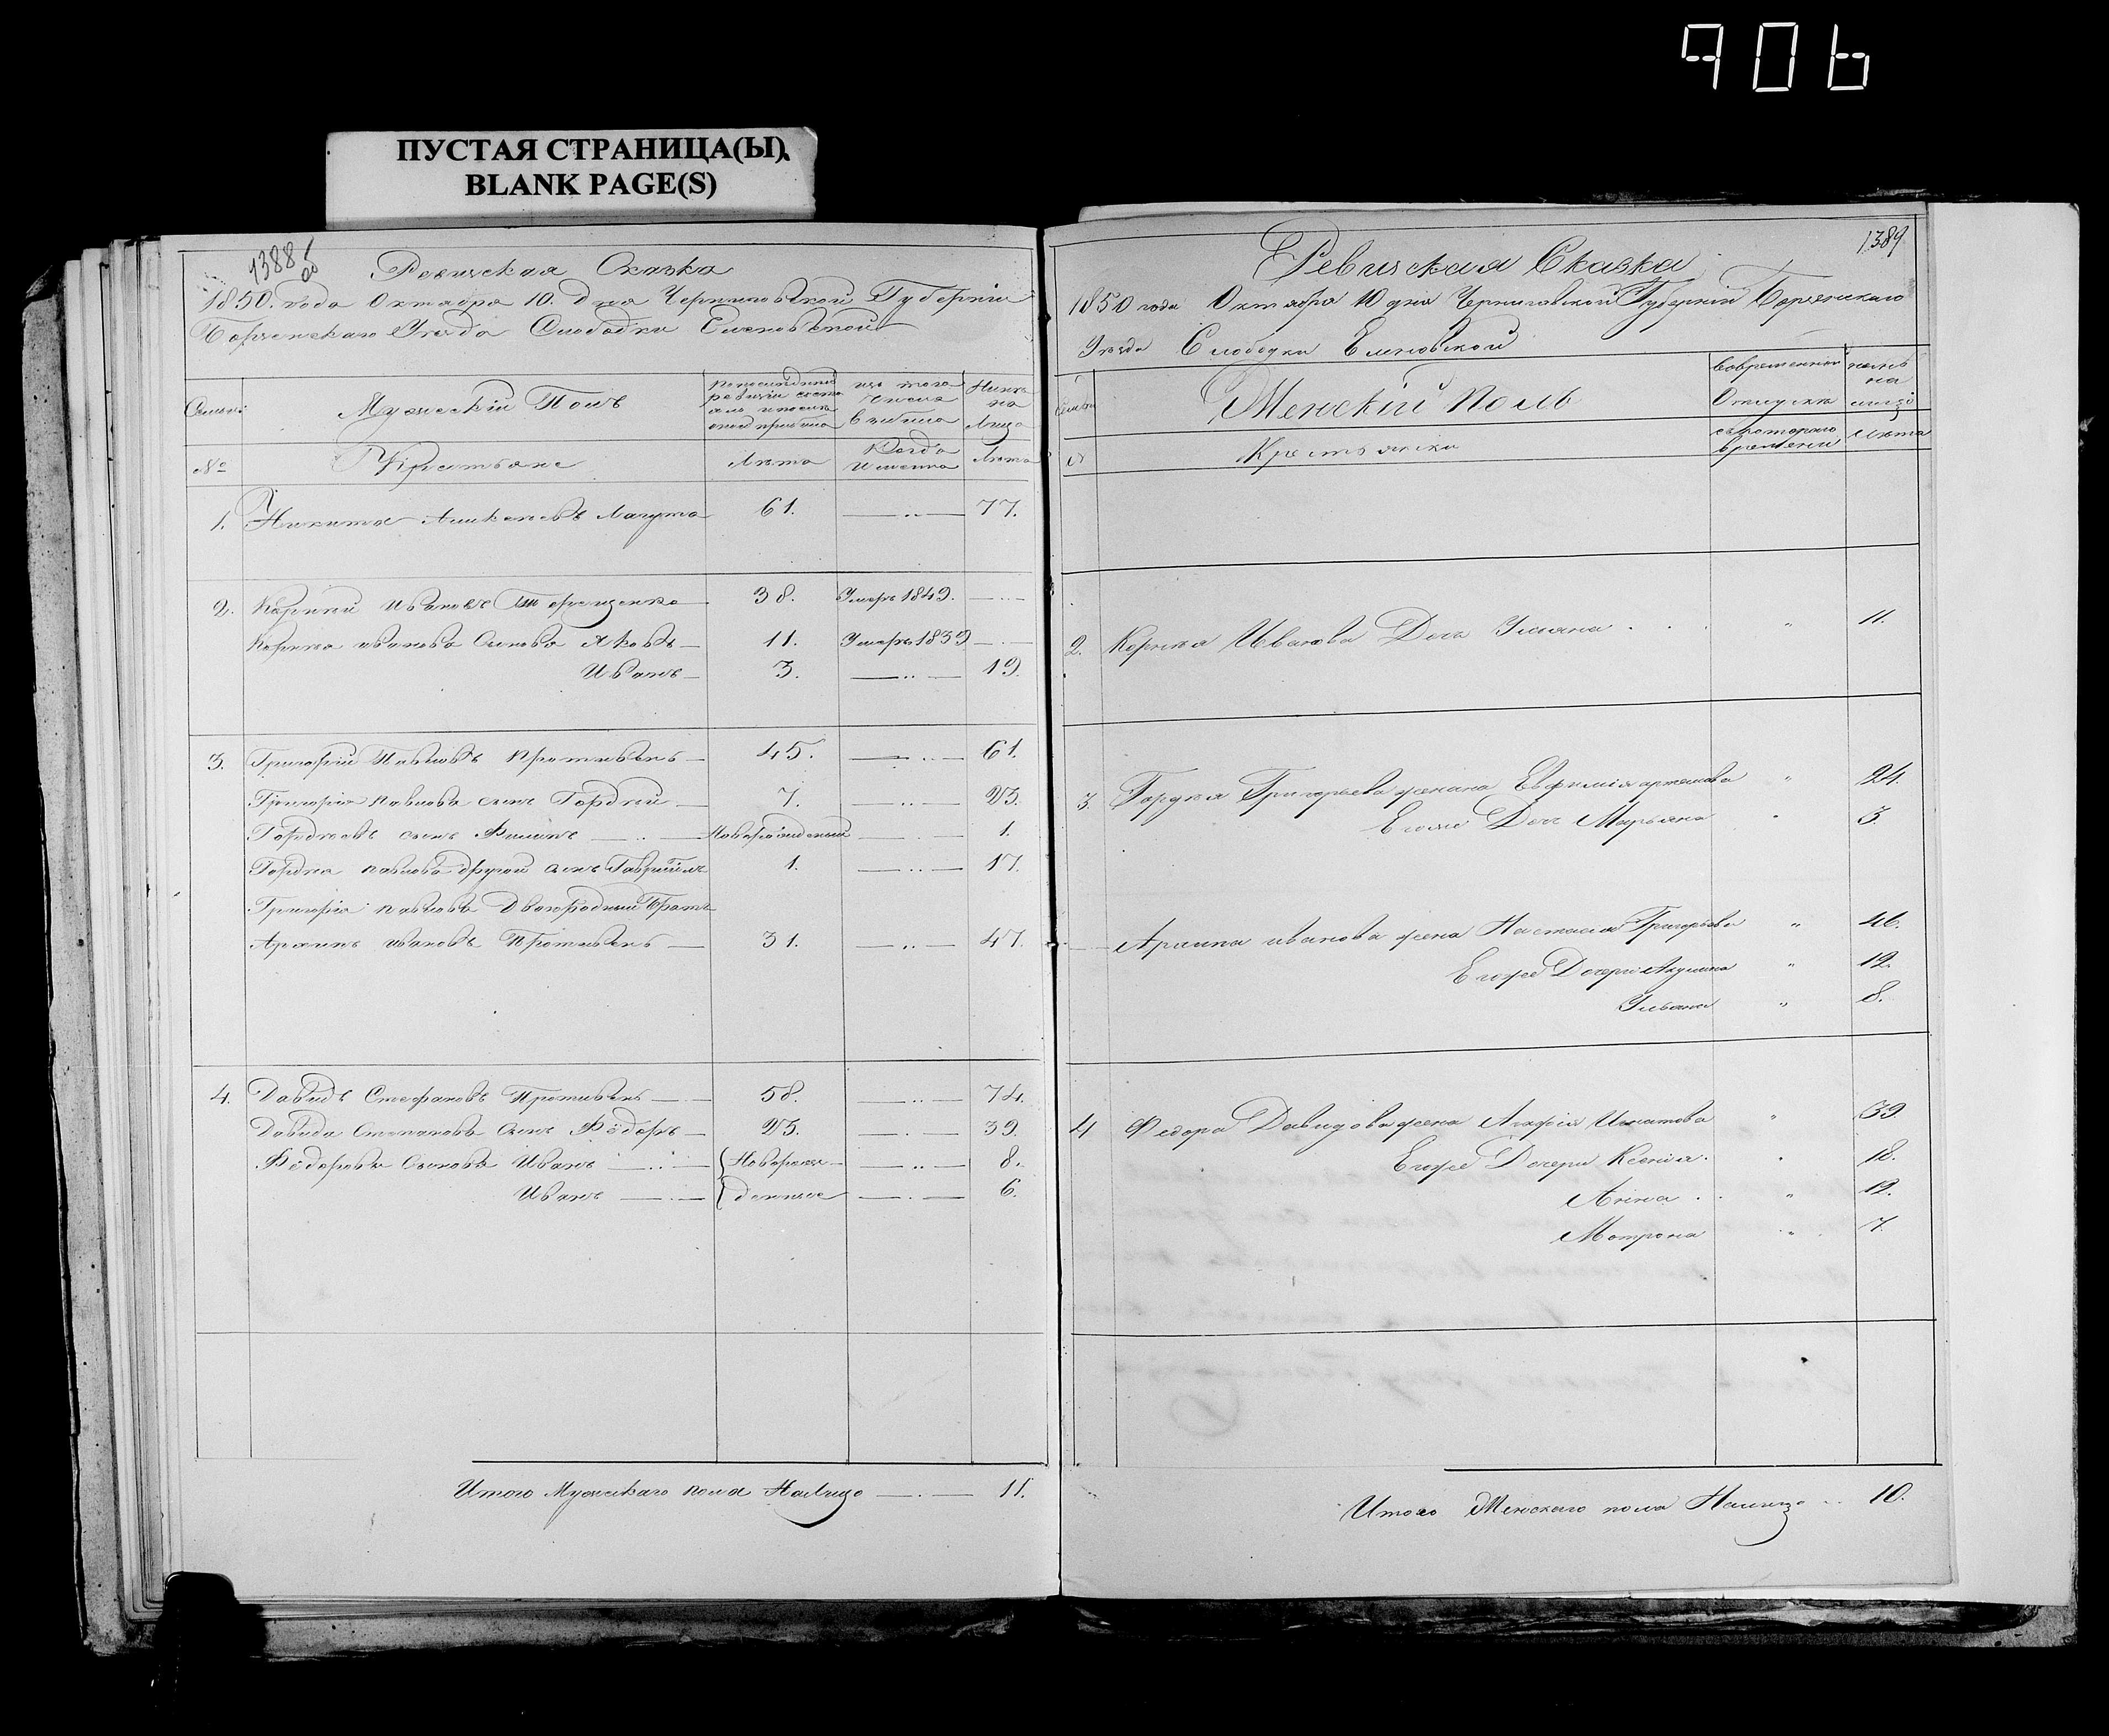 906
ПУСТАЯ СТРАНИЦА(Ы)
BLANK PAGE(S)
1388 об
Ревизская Сказка
1850. года Октября 10. дня Черниговской Губерніи
Борзенскаго Уезда Слободки Еленовской
Семьи
Мужескій Полъ
По последней ревизіи состояло и после оной прибыло
Изъ того числа выбыло
Ныне на Лицо
№
Крестьяне
Лета
Когда Именно
Лета
1. Никита Лагута 61. 77.
2. Иванов Терещенко 38. Умеръ 1849.
Иванова Сыновья Яковъ 11. Умеръ 1839
Иванъ 3. 19.
3. Григорій Павловъ Противень 45. 61.
Григорія Павлова сынъ Гордей 7. 23.
Гордеевъ сынъ Филипъ Новорожденный 1.
Павлова другой сынъ Гавріилъ 1. 17.
Григорія Павлова Двоюродный Братъ
Иванов Противень 31. 47.
4. Давидъ Стефановъ Противень 58. 74.
Давида Степанова сынъ Фёдоръ 23. 39.
Фёдоровы Сыновья Иванъ Новорож- 8.
Иванъ денные 6.
Итого Мужескаго пола На Лицо 11.
1389
Ревизская Сказка
1850 года Октября 10 дня Черниговской Губерніи Борзенскаго
Уезда Слободки Еленовской
Семьи
Женскій Полъ
Во временной Отлучке
ныне на лицо
№
Крестьянки
съ котораго времени
Лета
2. Иванова Дочь Ульяна " 11.
3. Гордея Григорьева жена Евфимія Артемова " 24.
Его же Дочь Марьяна " 3.
Иванова жена Настасія Григорьева " 46.
Его же Дочери Акулина " 12.
Ульяна " 8.
4 Федора Давидова жена Агафія Игнатова " 39
Его же Дочери Ксенія " 18.
Анна " 12.
Мотрона " 7.
Итого Женскаго пола Налицо 10.